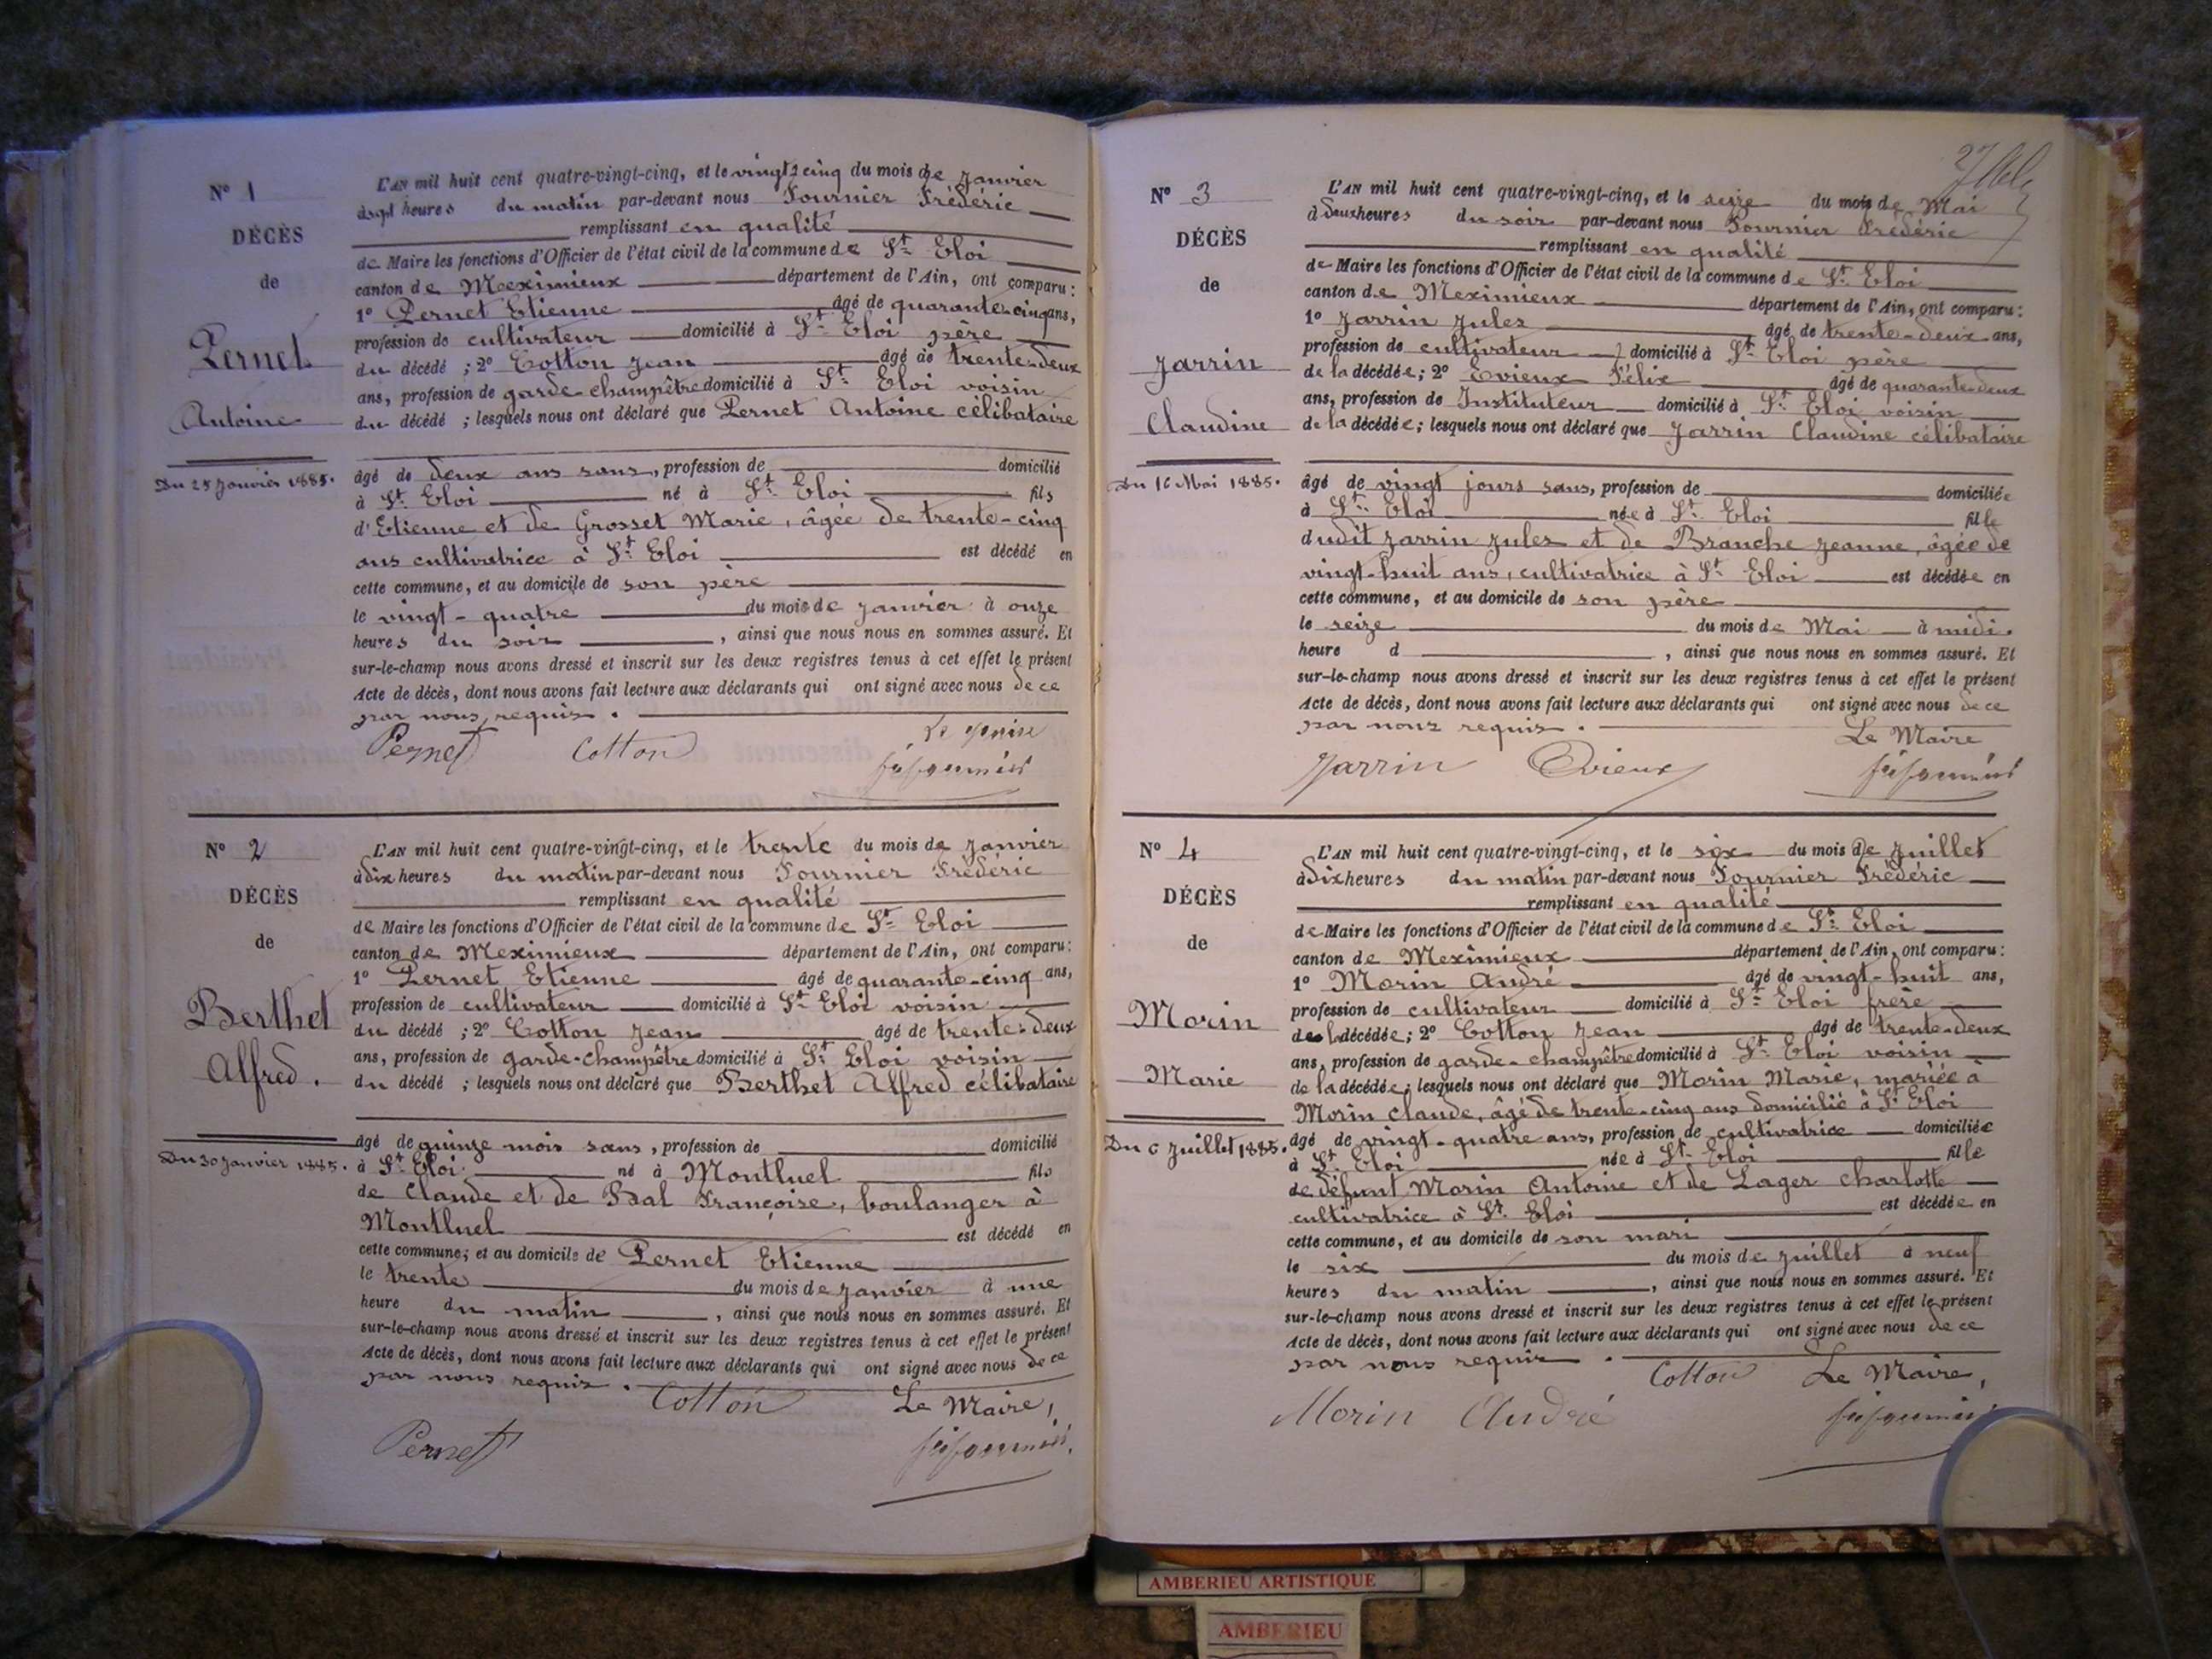 N° 1
DÉCÈS
de
Pernet
Antoine
Du 25 Janvier 1885.
L'AN mil huit cent quatre-vingt-cinq, et le vingt-cinq du mois de Janvier
à sept heures du matin par-devant nous Fournier Frédéric
remplissant en qualité
de Maire les fonctions d'Officier de l'état civil de la commune de St. Eloi
canton de Meximieux département de l'Ain, ont comparu :
1° Pernet Etienne âgé de quarante-cinq ans,
profession de cultivateur domicilié à St. Eloi père
du décédé ; 2° Cotton Jean âgé de trente-deux
ans, profession de garde-champêtre domicilié à St. Eloi voisin
du décédé ; lesquels nous ont déclaré que Pernet Antoine célibataire
âgé de deux ans sans, profession de domicilié
à St. Eloi né à St. Eloi fils
d'Etienne et de Grosset Marie, âgée de trente-cinq
ans cultivatrice à St. Eloi est décédé en
cette commune, et au domicile de son père
le vingt-quatre du mois de Janvier à onze
heures du soir , ainsi que nous nous en sommes assuré. Et
sur-le-champ nous avons dressé et inscrit sur les deux registres tenus à cet effet le présent
Acte de décès, dont nous avons fait lecture aux déclarants qui ont signé avec nous de ce
par nous requis.
Pernet Cotton Le Maire
N° 2
DÉCÈS
de
Berthet
Alfred.
Du 30 Janvier 1885.
L'AN mil huit cent quatre-vingt-cinq, et le trente du mois de Janvier
à dix heures du matin par-devant nous Fournier Frédéric
remplissant en qualité
de Maire les fonctions d'Officier de l'état civil de la commune de St. Eloi
canton de Meximieux département de l'Ain, ont comparu :
1° Pernet Etienne âgé de quarante-cinq ans,
profession de cultivateur domicilié à St. Eloi voisin
du décédé ; 2° Cotton Jean âgé de trente-deux
ans, profession de garde-champêtre domicilié à St. Eloi voisin
du décédé ; lesquels nous ont déclaré que Berthet Alfred célibataire
âgé de quinze mois sans, profession de domicilié
à St. Eloi né à Montluel fils
de Claude et de Françoise, boulanger à
Montluel est décédé en
cette commune, et au domicile de Pernet Etienne
le trente du mois de Janvier à une
heure du matin , ainsi que nous nous en sommes assuré. Et
sur-le-champ nous avons dressé et inscrit sur les deux registres tenus à cet effet le présent
Acte de décès, dont nous avons fait lecture aux déclarants qui ont signé avec nous de ce
par nous requis. Cotton Le Maire,
Pernet
N° 3
DÉCÈS
de
Jarrin
Claudine
Du 16 Mai 1885.
L'AN mil huit cent quatre-vingt-cinq, et le seize du mois de Mai
à deux heures du soir par-devant nous Fournier Frédéric
remplissant en qualité
de Maire les fonctions d'Officier de l'état civil de la commune de St. Eloi
canton de Meximieux département de l'Ain, ont comparu :
1° Jarrin Jules âgé de trente-deux ans,
profession de cultivateur domicilié à St. Eloi père
de la décédée ; 2° Evieux Félix âgé de quarante-deux
ans, profession de Instituteur domicilié à St. Eloi voisin
de la décédée ; lesquels nous ont déclaré que Jarrin Claudine célibataire
âgé de vingt jours sans, profession de domiciliée
à St. Eloi née à St. Eloi fille
dudit Jarrin Jules et de Branche Jeanne, âgée de
vingt-huit ans, cultivatrice à St. Eloi est décédée en
cette commune, et au domicile de son père
le seize du mois de Mai à midi.
heure d , ainsi que nous nous en sommes assuré. Et
sur-le-champ nous avons dressé et inscrit sur les deux registres tenus à cet effet le présent
Acte de décès, dont nous avons fait lecture aux déclarants qui ont signé avec nous de ce
par nous requis. Le Maire
Jarrin Evieux
N° 4
DÉCÈS
de
Morin
Marie
Du 6 Juillet 1885.
L'AN mil huit cent quatre-vingt-cinq, et le six du mois de Juillet
à Dix heures du matin par-devant nous Fournier Frédéric
remplissant en qualité
de Maire les fonctions d'Officier de l'état civil de la commune de St. Eloi
canton de Meximieux département de l'Ain, ont comparu :
1° Morin André âgé de vingt-huit ans,
profession de cultivateur domicilié à St. Eloi frère
de la décédée ; 2° Cotton Jean âgé de trente-deux
ans, profession de garde-champêtre domicilié à St. Eloi voisin
de la décédée ; lesquels nous ont déclaré que Morin Marie, mariée à
Morin Claude, âgé de trente-cinq ans domicilié à St. Eloi
âgé de vingt-quatre ans, profession de cultivatrice domiciliée
à St. Eloi née à St. Eloi fille
de défunt Morin Antoine et de Lager Charlotte
cultivatrice à St. Eloi est décédée en
cette commune, et au domicile de son mari
le six du mois de Juillet à neuf
heures du matin , ainsi que nous nous en sommes assuré. Et
sur-le-champ nous avons dressé et inscrit sur les deux registres tenus à cet effet le présent
Acte de décès, dont nous avons fait lecture aux déclarants qui ont signé avec nous de ce
par nous requis. Cotton Le Maire,
Morin André
AMBERIEU ARTISTIQUE
AMBERIEU